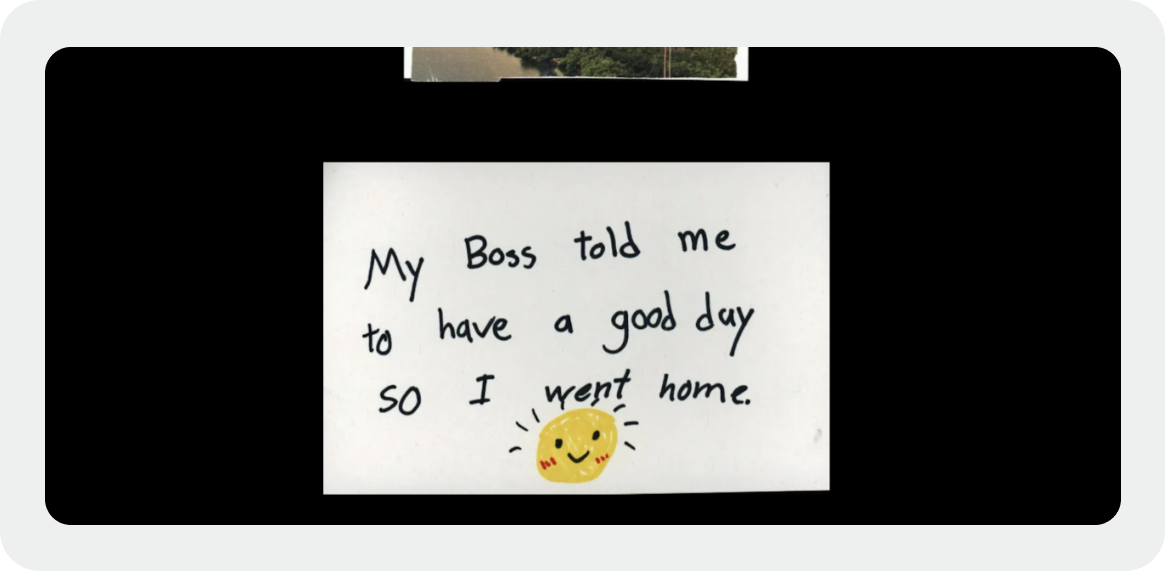 My Boss told me
to have a good day
so I went home.